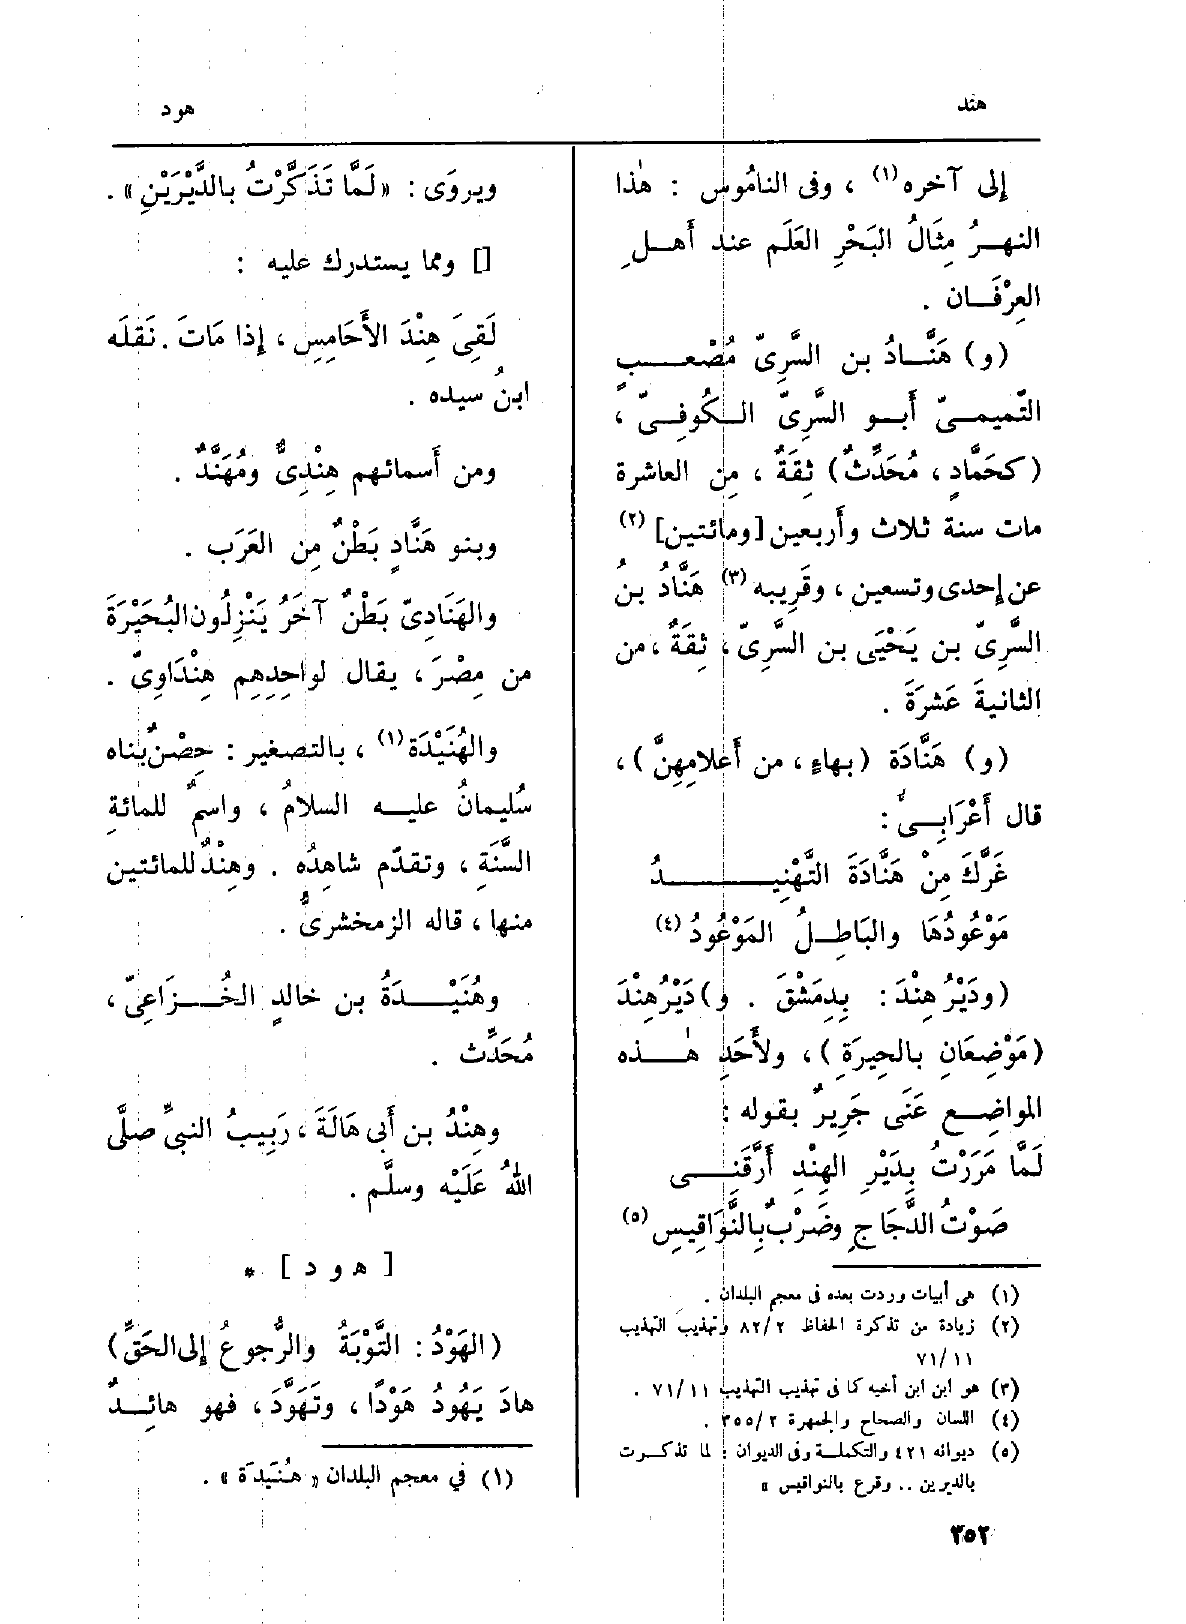 هند
هود
إلى آخره (١) ، وفى النامُوس : هٰذا
النهـرُ مِثَالُ البَحْرِ العَلَم عند أَهـلِ
العِرْفَـان .
(و) هَنَّـادُ بن السَّرِىّ مُصْعـبٍ
التّميمـىّ أَبـو السَّرِىّ الـكُوفِـىّ ،
(كحَمَّادٍ ، مُحَدِّثٌ) ثِقَةٌ ، مِن العاشرة
مات سنة ثلاث وأَربعين [ومائتين] (٢)
عن إحدى وتسعين ، وقَرِيبه (٣) هَنَّادُ بنُ
السَّرِىّ بن يَحْيَى بن السَّرِىّ ، ثِقَةٌ ، من
الثانيةَ عَشرَةَ .
(و) هَنَّادَة (بهاءٍ ، من أَعْلامِهِنَّ ) ،
قال أَعْرَابِـىٌّ :
غَرَّكَ مِنْ هَنَّادَةَ التَّهْنِيـدُ
مَوْعُودُهَا والبَاطِـلُ المَوْعُودُ (٤)
(ودَيْرُ هِنْدَ : بِدِمَشْقَ . و) دَيْرُ هِنْدَ
(مَوْضِعَانِ بالحِيرَةِ ) ، ولأَحَدِ هٰـذه
المواضِـع عَنَى جَرِيرٌ بقوله :
لَمَّا مَرَرْتُ بِدَيْرِ الهِنْدِ أَرَّقَنِـى
صَوْتُ الدَّجَاجِ وضَرْبٌ بِالنَّوَاقِيسِ (٥)
(١) هى أبيات وردت بعده فى معجم البلدان .
(٢) زيادة من تذكرة الحفاظ ٨٢/٢ وتهذيب التهذيب
٧١/١١
(٣) هو ابن ابن أخيه كما فى تهذيب التهذيب ٧١/١١ .
(٤) اللسان والصحاح والجمهرة ٣٥٥/٢ .
(٥) ديوانه ٤٢١ والتكملـة وفى الديوان : لما تذكـرت
بالديرين .. وقرع بالنواقيس »
ويروَى : « لَمَّا تَذَكَّرْتُ بالدَّيْرَيْنِ » .
[] ومما يستدرك عليه :
لَقِىَ هِنْدَ الأَحَامِسِ ، إِذا مَاتَ . نَقلَه
ابنُ سيده .
ومن أَسمائهم هِنْدِىٌّ ومُهَنَّدٌ .
وبنو هَنَّادٍ بَطْنٌ مِن العَرَب .
والهَنَادِىّ بَطْنٌ آخَرُ يَنْزِلُون البُحَيْرَةَ
من مِصْرَ ، يقال لواحِدِهِم هِنْدَاوِىّ .
والهُنَيْدَة (١) ، بالتصغير : حِصْنٌ بناه
سُليمانُ عليـه السلامُ ، واسمٌ للمائةِ
السَّنَةِ ، وتقدّم شاهِدُه . وهِنْدٌ للمائتين
منها ، قاله الزمخشرىُّ .
وهُنَيْـدَةُ بن خالدٍ الخُـزَاعِىّ ،
مُحَدِّث .
وهِنْدُ بن أَبى هَالَةَ ، رَبِيبُ النبىِّ صلَّى
اللهُ عَلَيْه وسلَّم .
[ هـ و د ] *
(الهَوْدُ : التَّوْبَةُ والرُّجوعُ إلى الحَقِّ)
هادَ يَهُودُ هَوْدًا ، وتَهَوَّدَ ، فهو هائِـدٌ
(١) في معجم البلدان « هُنَيدَة » .
٣٥٢